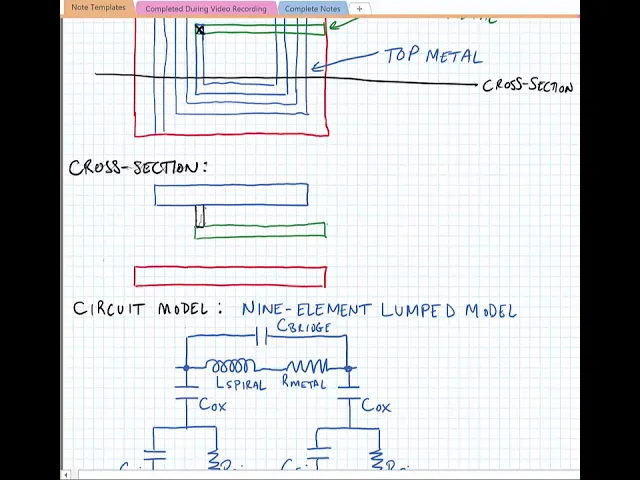 Note Templates
Completed During Video Recording
Complete Notes
TOP METAL
CROSS-SECTION
CROSS-SECTION:
CIRCUIT MODEL: NINE-ELEMENT LUMPED MODEL
CBRIDGE
LSPIRAL RMETAL
COX COX